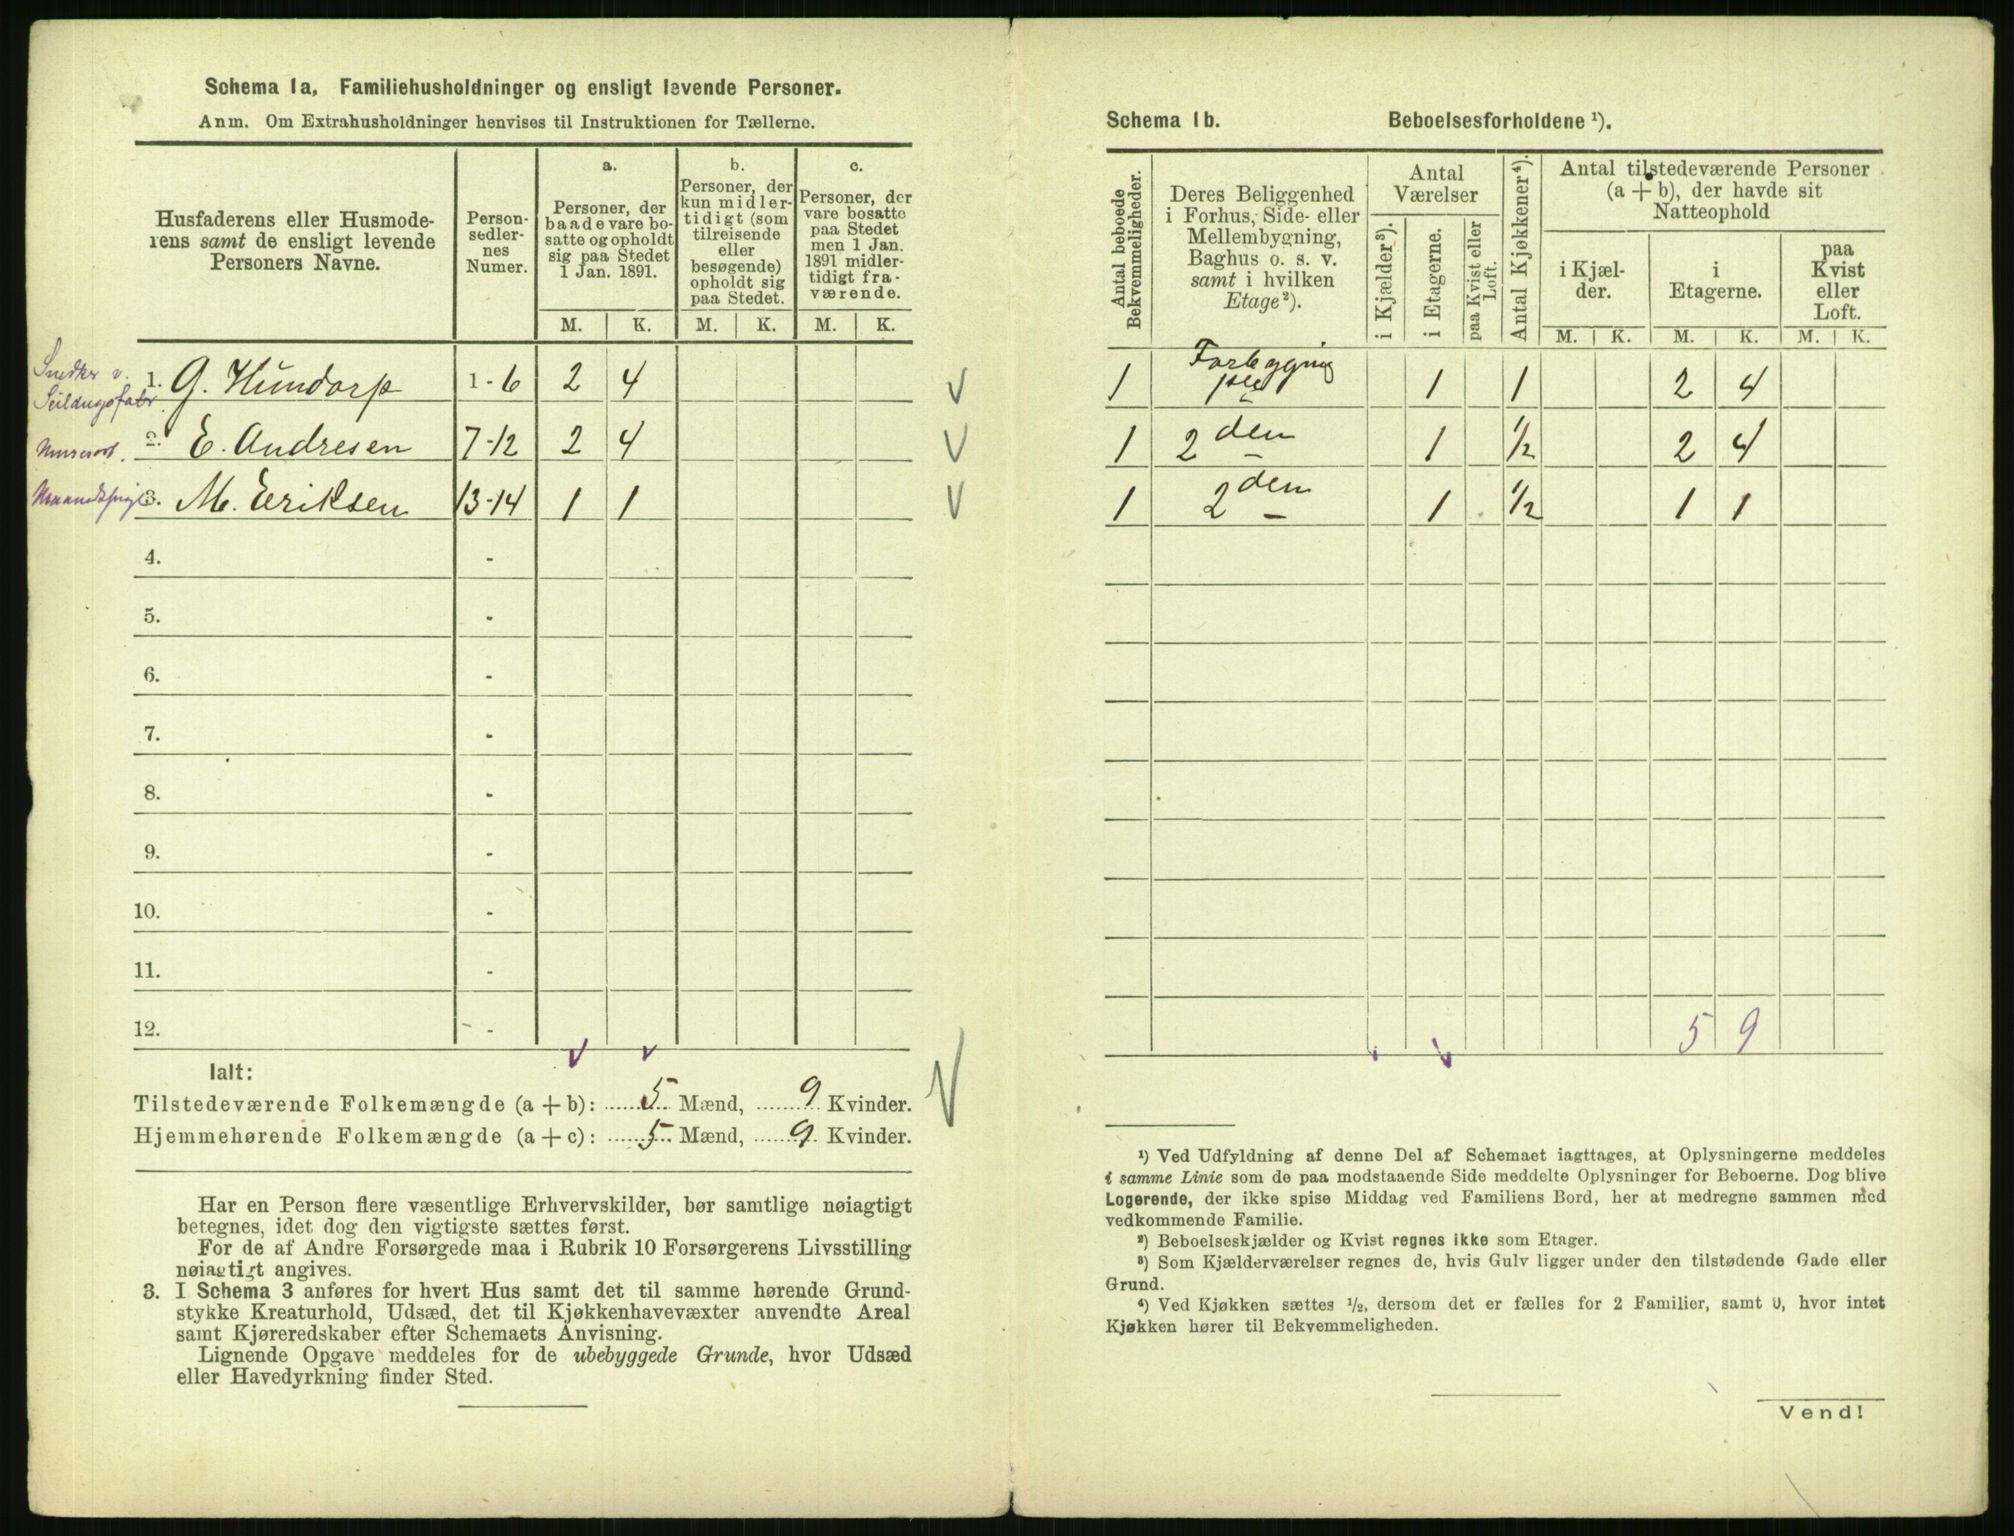 Schema 1a, Familiehusholdninger og ensligt levende Personer.
Anm. Om Extrahusholdninger henvises til Instruktionen for Tællerne.
Husfaderens eller Husmode-
rens samt de ensligt levende
Personers Navne.
Person-
sedler-
nes
Numer.
a.
Personer, der
baade vare bo-
satte og opholdt
sig paa Stedet
1 Jan. 1891.
b.
Personer, der
kun midler-
tidigt (som
tilreisende
eller
besøgende)
opholdt sig
paa Stedet.
c.
Personer, der
vare bosatte
paa Stedet
men 1 Jan.
1891 midler-
tidigt fra-
værende.
M. K. M. K. M. K.
Snedker v.
Seildugsfabr.
1. G. Hundorp 1-6 2 4
2. E. Andresen 7-12 2 4
3. M. Eriksen 13-14 1 1
4. -
5. -
6. -
7. -
8. -
9. -
10. -
11. -
12. -
Ialt:
Tilstedeværende Folkemængde (a + b): 5 Mænd, 9 Kvinder.
Hjemmehørende Folkemængde (a + c): 5 Mænd, 9 Kvinder.
Har en Person flere væsentlige Erhvervskilder, bør samtlige nøiagtigt
betegnes, idet dog den vigtigste sættes først.
For de af Andre Forsørgede maa i Rubrik 10 Forsørgerens Livsstilling
nøiagtigt angives.
3. I Schema 3 anføres for hvert Hus samt det til samme hørende Grund-
stykke Kreaturhold, Udsæd, det til Kjøkkenhavevæxter anvendte Areal
samt Kjøreredskaber efter Schemaets Anvisning.
Lignende Opgave meddeles for de ubebyggede Grunde, hvor Udsæd
eller Havedyrkning finder Sted.
Schema 1b. Beboelsesforholdene ¹).
Antal beboede
Bekvemmeligheder.
Deres Beliggenhed
i Forhus, Side- eller
Mellembygning,
Baghus o. s. v.
samt i hvilken
Etage ²).
Antal
Værelser
i Kjælder ³).
i Etagerne.
paa Kvist eller
Loft.
Antal Kjøkkener ⁴).
Antal tilstedeværende Personer
(a + b), der havde sit
Natteophold
i Kjæl-
der.
i
Etagerne.
paa
Kvist
eller
Loft.
M. K. M. K. M. K.
1 Forbygning 1ste 1 1 2 4
1 2den 1 ½ 2 4
1 2den 1 ½ 1 1
5 9
¹) Ved Udfyldning af denne Del af Schemaet iagttages, at Oplysningerne meddeles
i samme Linie som de paa modstaaende Side meddelte Oplysninger for Beboerne. Dog blive
Logerende, der ikke spise Middag ved Familiens Bord, her at medregne sammen med
vedkommende Familie.
²) Beboelseskjælder og Kvist regnes ikke som Etager.
³) Som Kjælderværelser regnes de, hvis Gulv ligger under den tilstødende Gade eller
Grund.
⁴) Ved Kjøkken sættes ½, dersom det er fælles for 2 Familier, samt 0, hvor intet
Kjøkken hører til Bekvemmeligheden.
Vend!